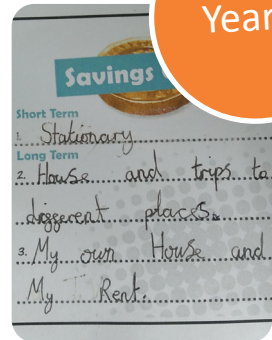 Year
Savings
Short Term
1. Stationary
Long Term
2. House and trips to
diggerent places.
3. My own House and
My Rent.